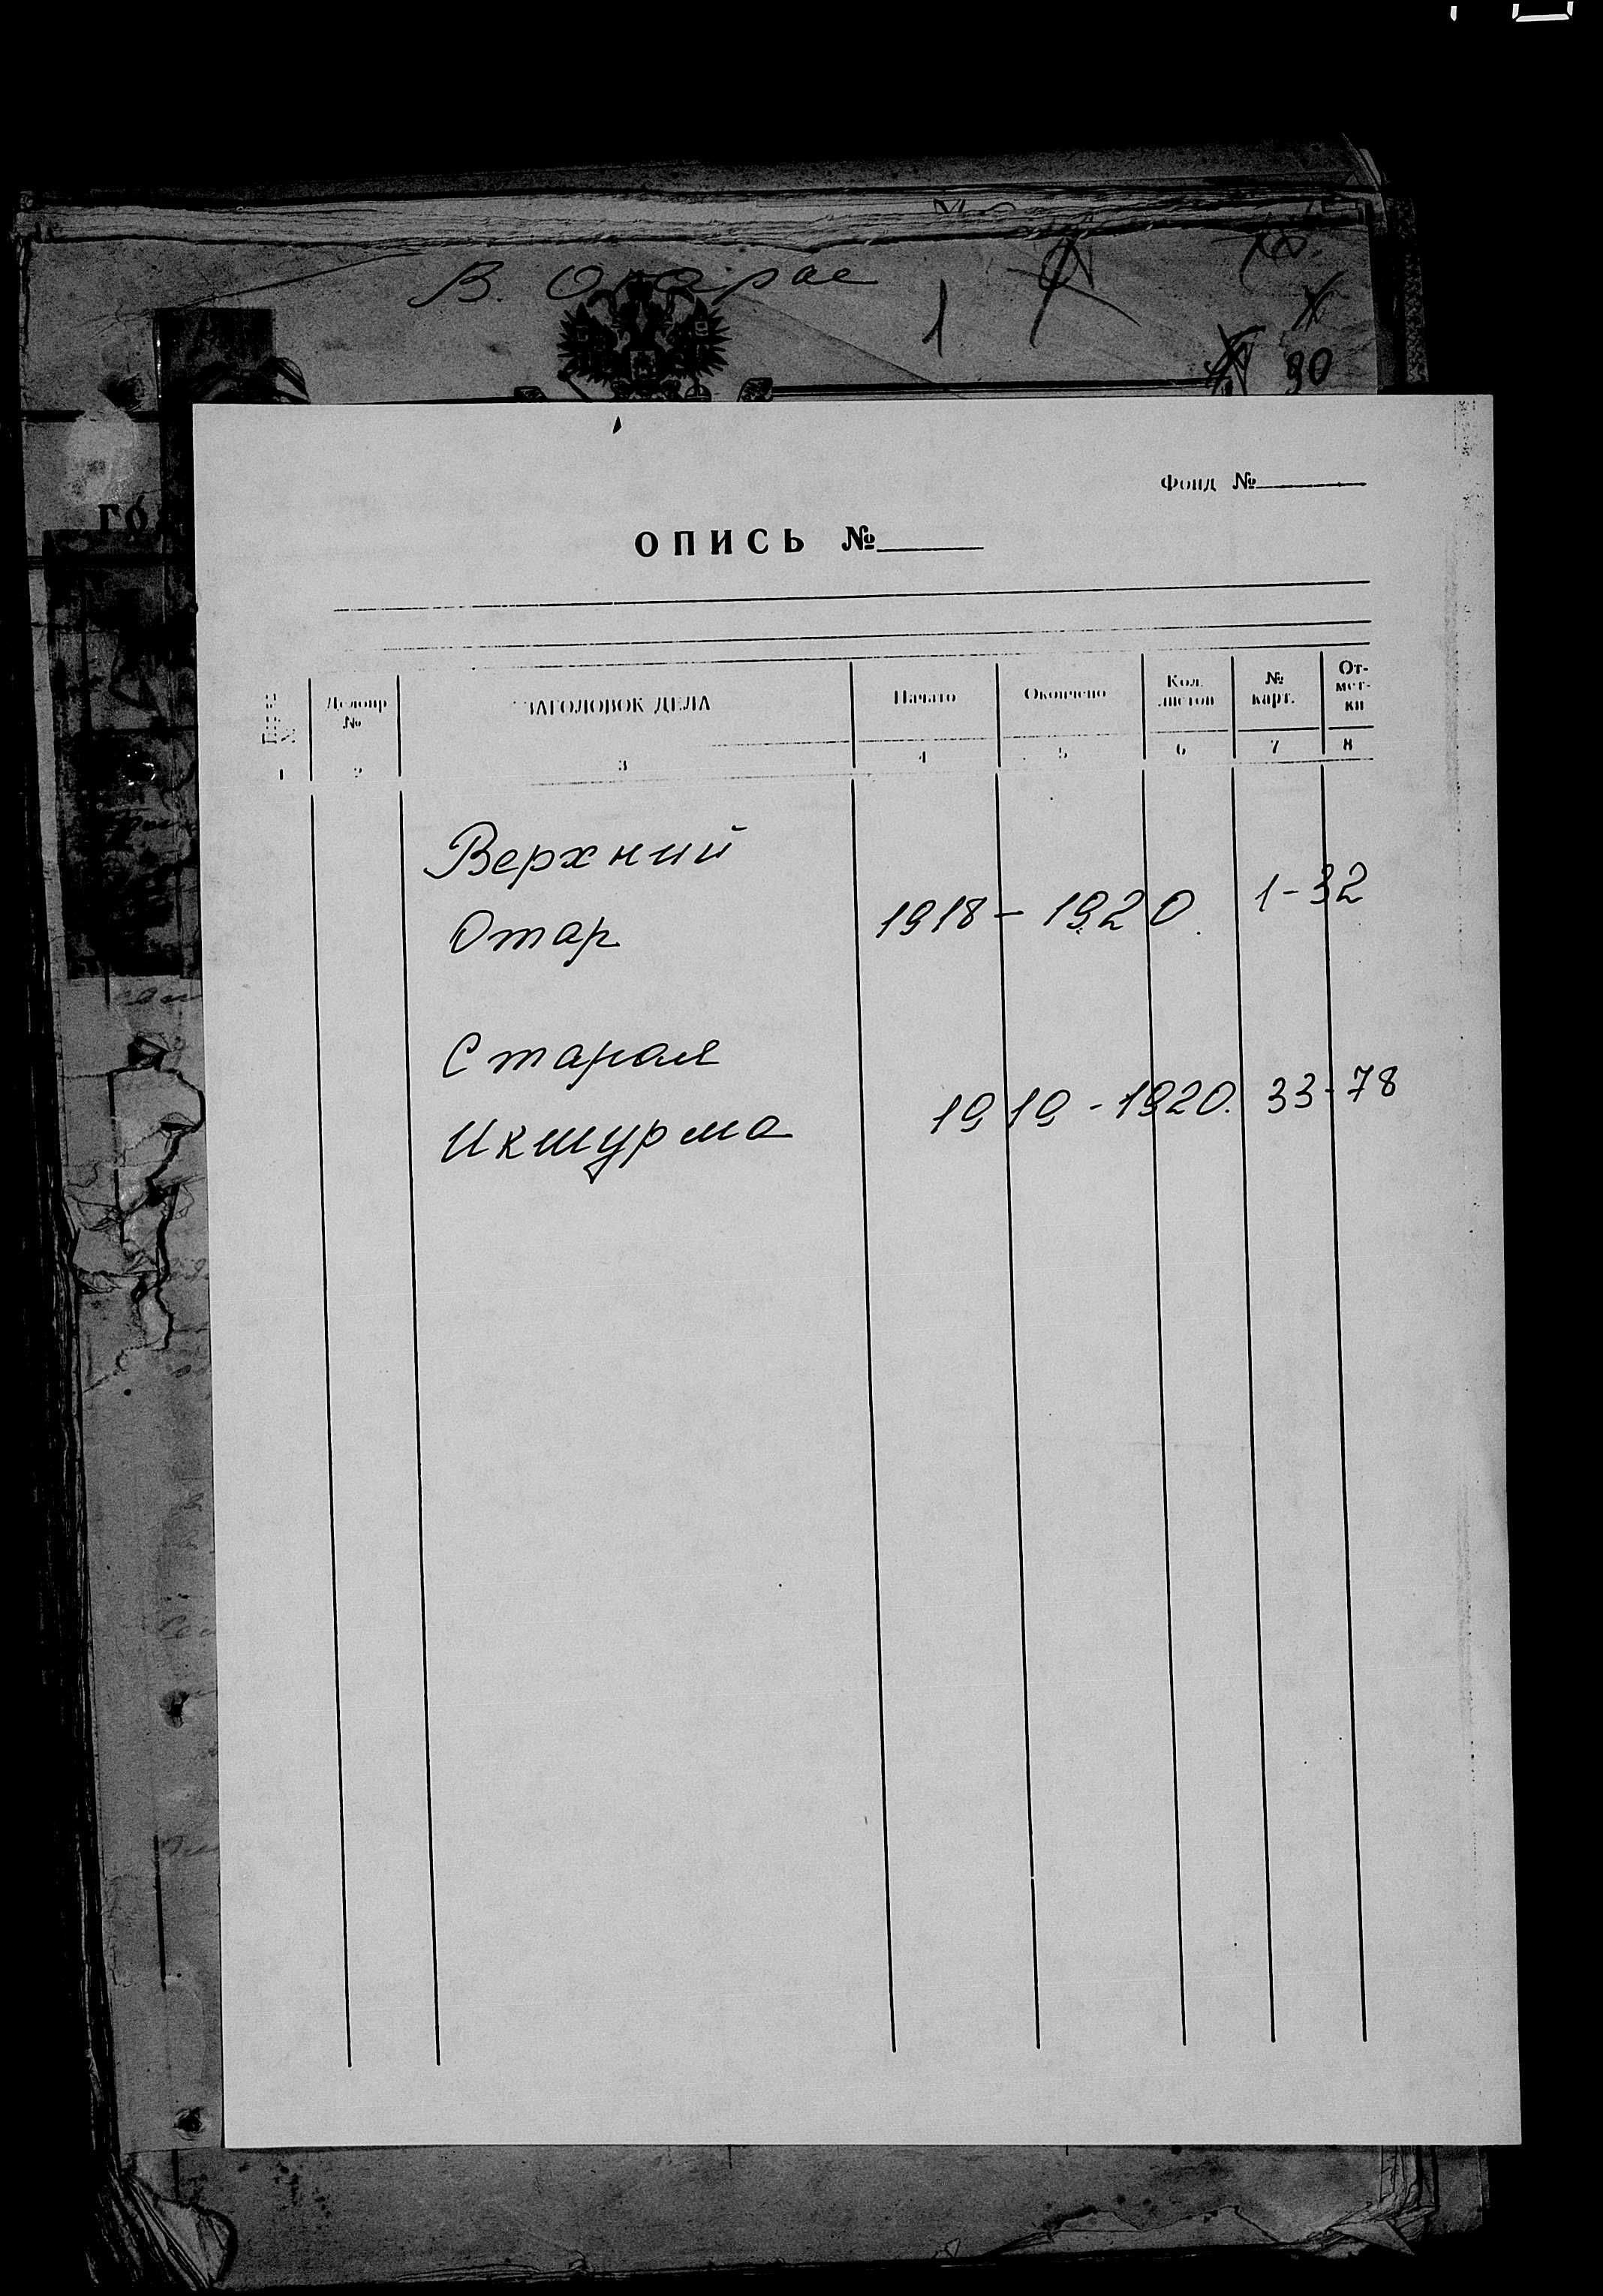 1
90
Фонд №
ОПИСЬ №
Делопр. №
ЗАГОЛОВОК ДЕЛА
Начато
Окончено
Кол. листов
№ карт.
От-мет-ки
1 2 3 4 5 6 7 8
Верхний
Отар 1918 - 1920. 1-32
Старая
Икшурма 1919 - 1920. 33-78